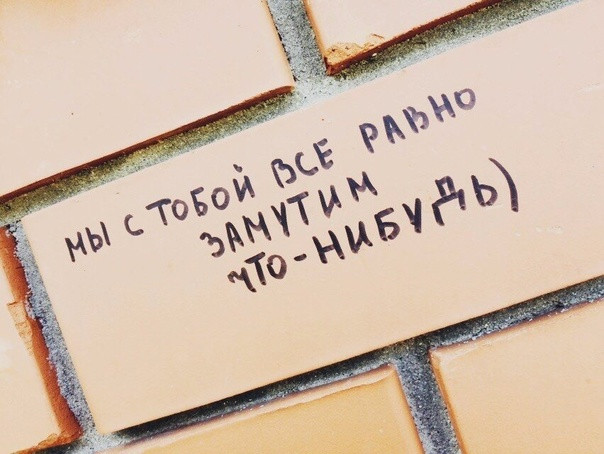 МЫ С ТОБОЙ ВСЕ РАВНО
ЗАМУТИМ
ЧТО-НИБУДЬ)